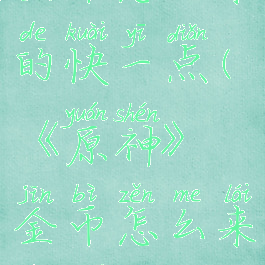 de kuài yī diǎn
的快一点(
yuán shén
《原神》
jīn bì zěn me lái
金币怎么来